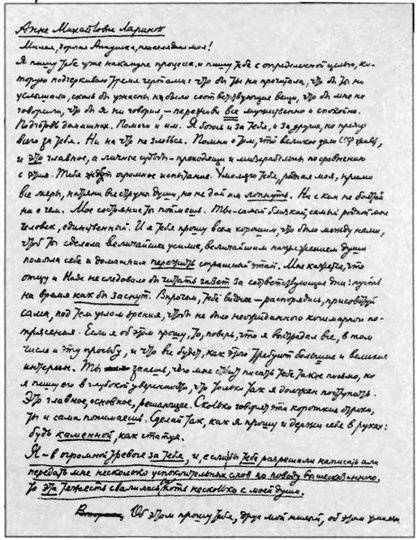 Анне Михайловне Лариной
Милая, дорогая Аннушка, ненаглядная моя!
Я пишу тебе уже накануне процесса, и пишу тебе с определенной целью, ко-
торую подчеркиваю тремя чертами: что бы ты ни прочитала, что бы ты ни
услышала, сколь бы ужасны ни были соответствующие вещи, что бы мне ни
говорили, что бы я ни говорил, — переживи все мужественно и спокойно.
Подготовь домашних. Помоги и им. Я боюсь и за тебя, и за других, но прежде
всего за тебя. Ни на что не злобься. Помни о том, что великое дело СССР живет,
и это главное, а личные судьбы — преходящи и мизерабельны по сравнению
с этим. Тебя ждет огромное испытание. Умоляю тебя, родная моя, прими
все меры, натяни все струны души, но не дай им лопнуть. Ни с кем не болтай
ни о чем. Мое состояние ты поймешь. Ты — самый близкий, самый родной мне
человек, единственный. И я тебя прошу всем хорошим, что было между нами,
чтоб ты сделала величайшее усилие, величайшим напряжением души
помогла себе и домашним пережить страшный этап. Мне кажется, что
отцу и Наде не следовало бы читать газет за соответствующие дни: пусть
на время как бы заснут. Впрочем, тебе виднее — распорядись, присоветуй
сама, под тем углом зрения, чтобы не было неожиданного кошмарного по-
трясения. Если я об этом прошу, то, поверь, что я выстрадал все, в том
числе и эту просьбу, и что все будет, как этого требуют большие и великие
интересы. Ты знаешь, чего мне стоит писать тебе такое письмо, но
я пишу его в глубокой уверенности, что только так я должен поступать.
Это главное, основное, решающее. Сколько говорят эти короткие строки,
ты и сама понимаешь. Сделай так, как я прошу и держи себя в руках:
будь каменной, как статуя.
Я — в огромной тревоге за тебя, и, если бы тебе разрешили написать или
передать мне несколько успокоительных слов по поводу вышесказанного,
то эта тяжесть свалилась бы хоть несколько с моей души.
Об этом прошу тебя, друг мой милый, об этом умоляю